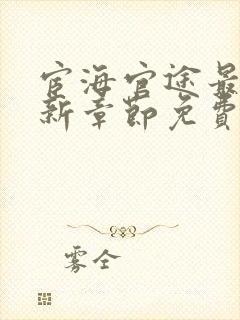 宦海官途最
新章節免費
雾全